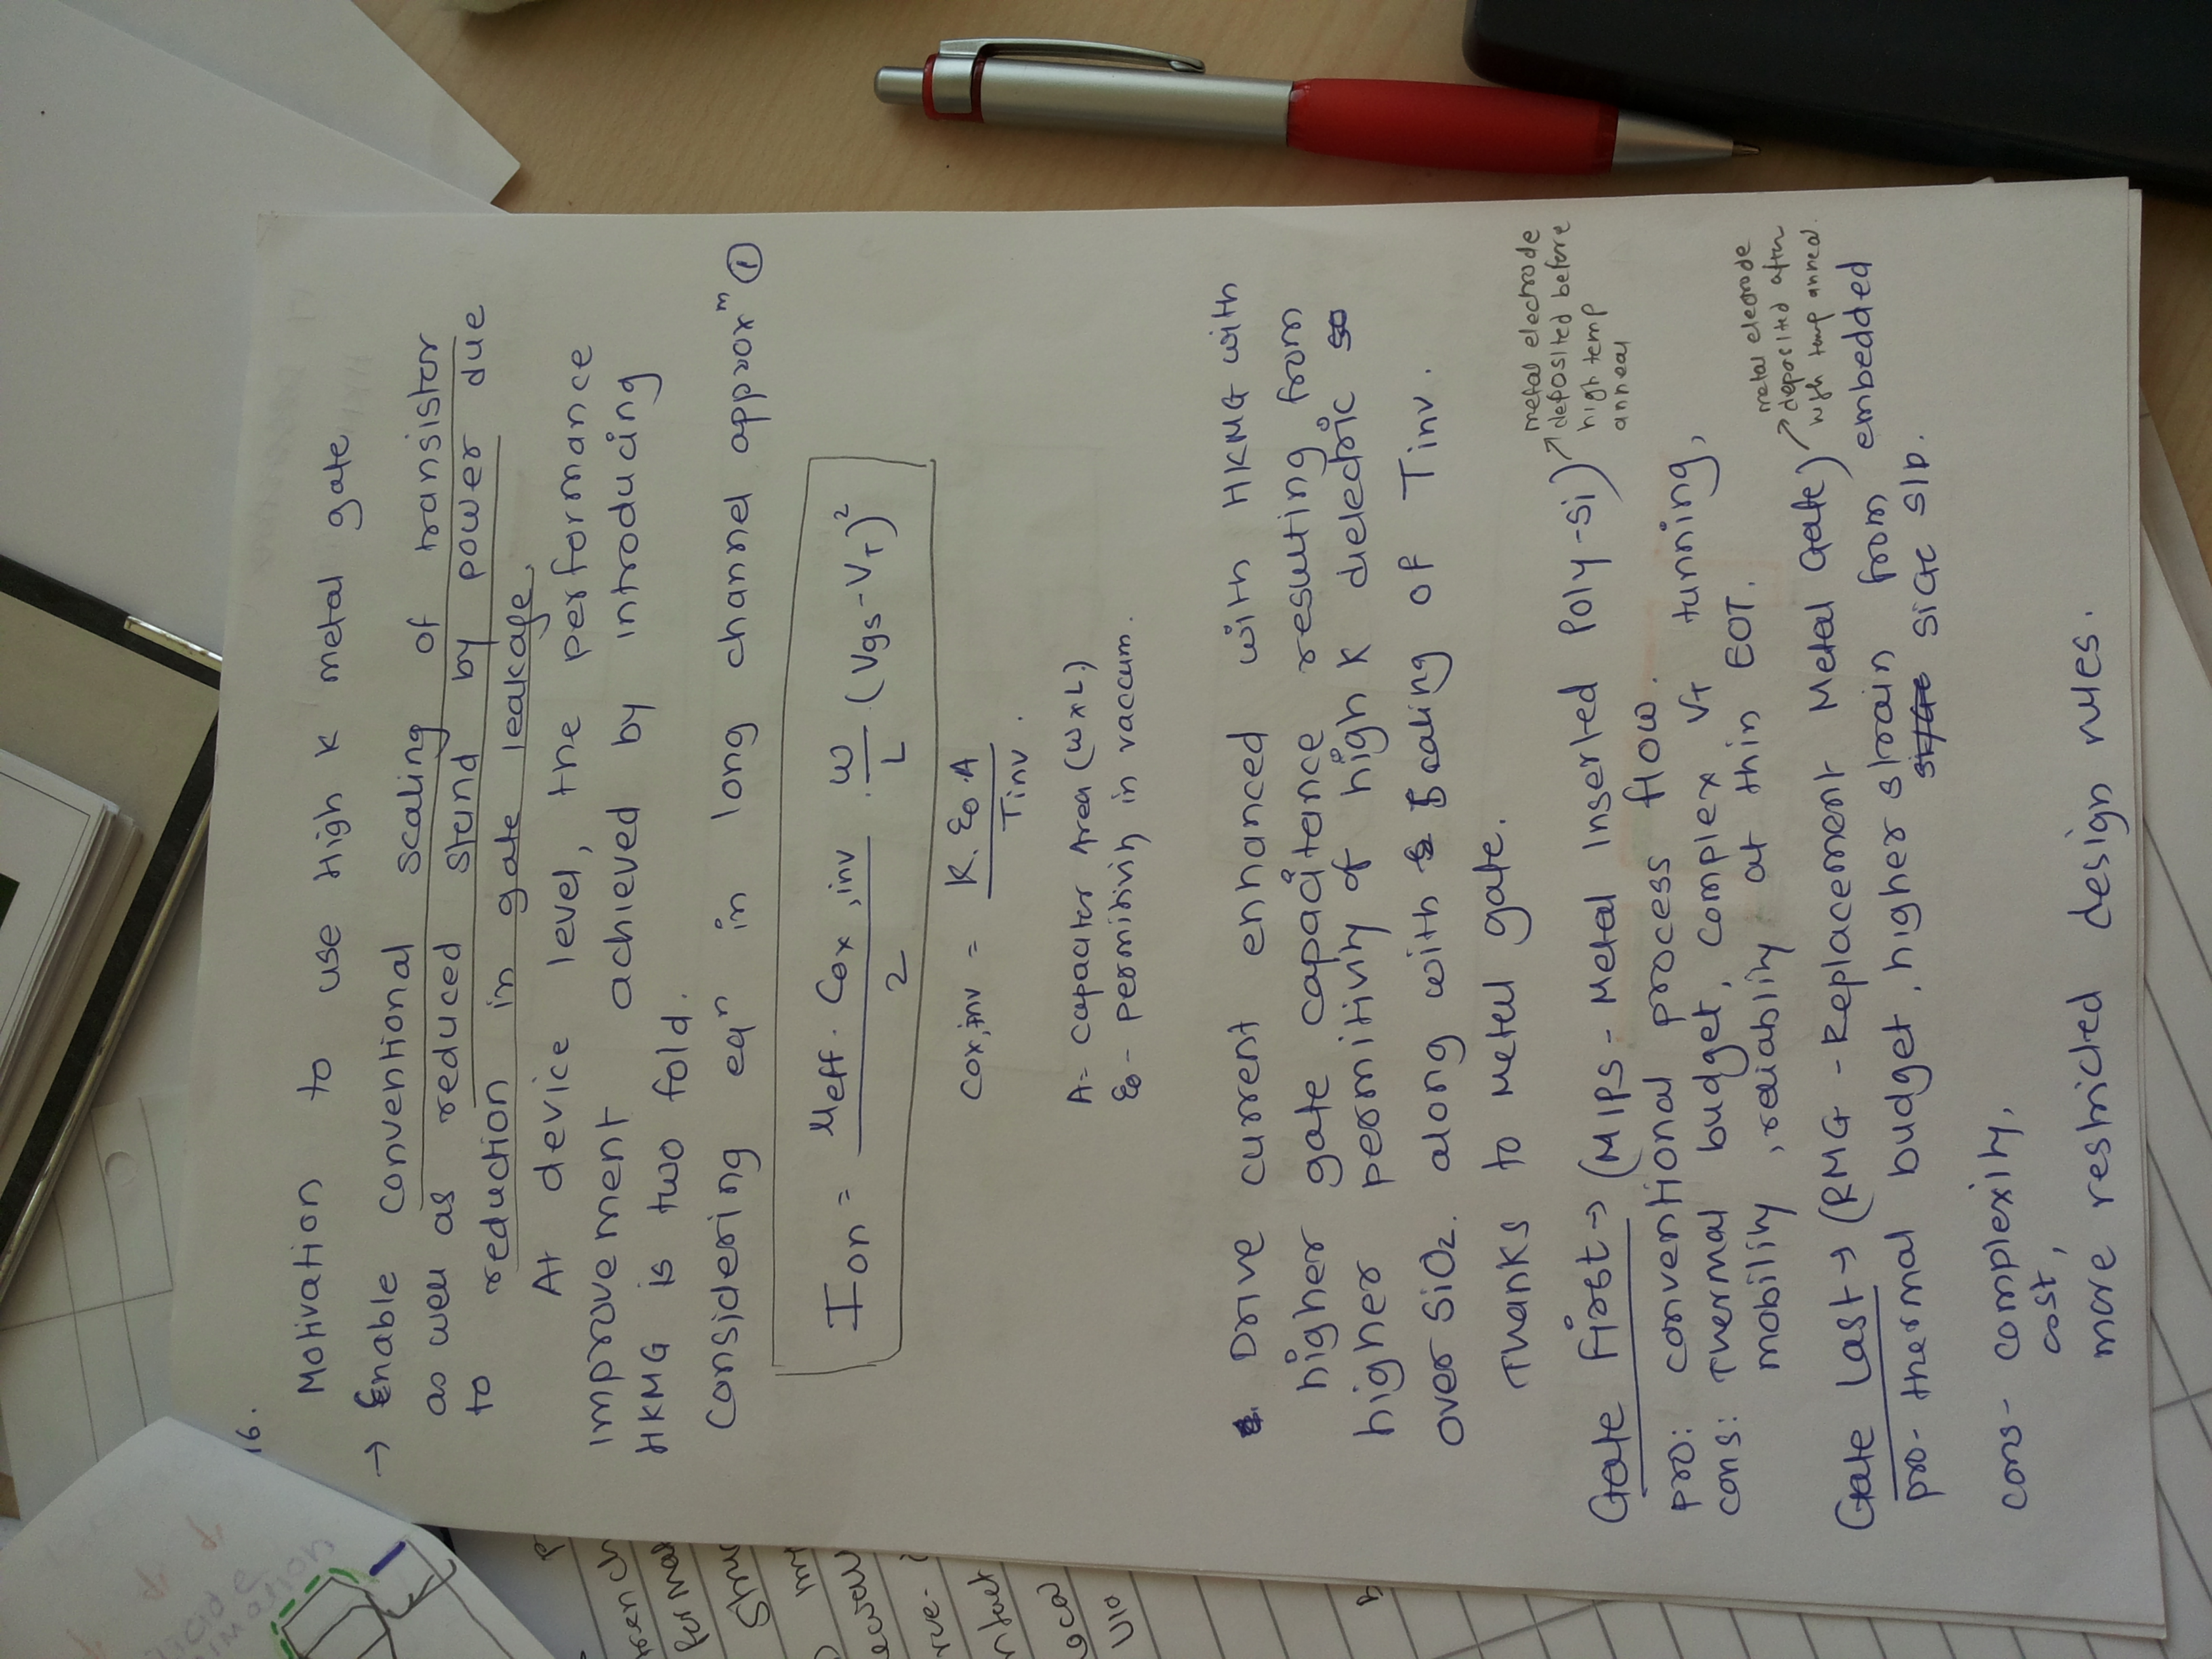 16.
Motivation to use High K metal gate
→ Enable conventional scaling of transistor
as well as reduced stand by power due
to reduction in gate leakage.
At device level, the performance
improvement achieved by introducing
HKMG is two fold.
Considering eqⁿ in long channel approxᵐ ①
Ion = μeff. Cox,inv / 2 . W/L (Vgs-VT)²
Cox,inv = K. ε0 .A / Tinv .
A= capacitor Area (W x L)
ε0 - permitivity in vaccum.
Drive current enhanced with HKMG with
higher gate capacitance resulting from
higher permitivity of high K dielectric
over SiO2. along with Scaling of Tinv.
Thanks to Metal gate.
metal electrode
deposited before
high temp
anneal
Gate First → (MIPS - Metal Inserted Poly-Si)
pro: conventional process flow.
cons: Thermal budget, complex VT tunning,
mobility, reliablity at thin EOT.
metal elecrode
deposited after
high temp anneal.
Gate Last → (RMG - Replacement Metal Gate)
pro- thermal budget, higher strain from embedded
SiGe S/D.
cons- complexity,
cost,
more restricted design rules.
trench
format
Struc